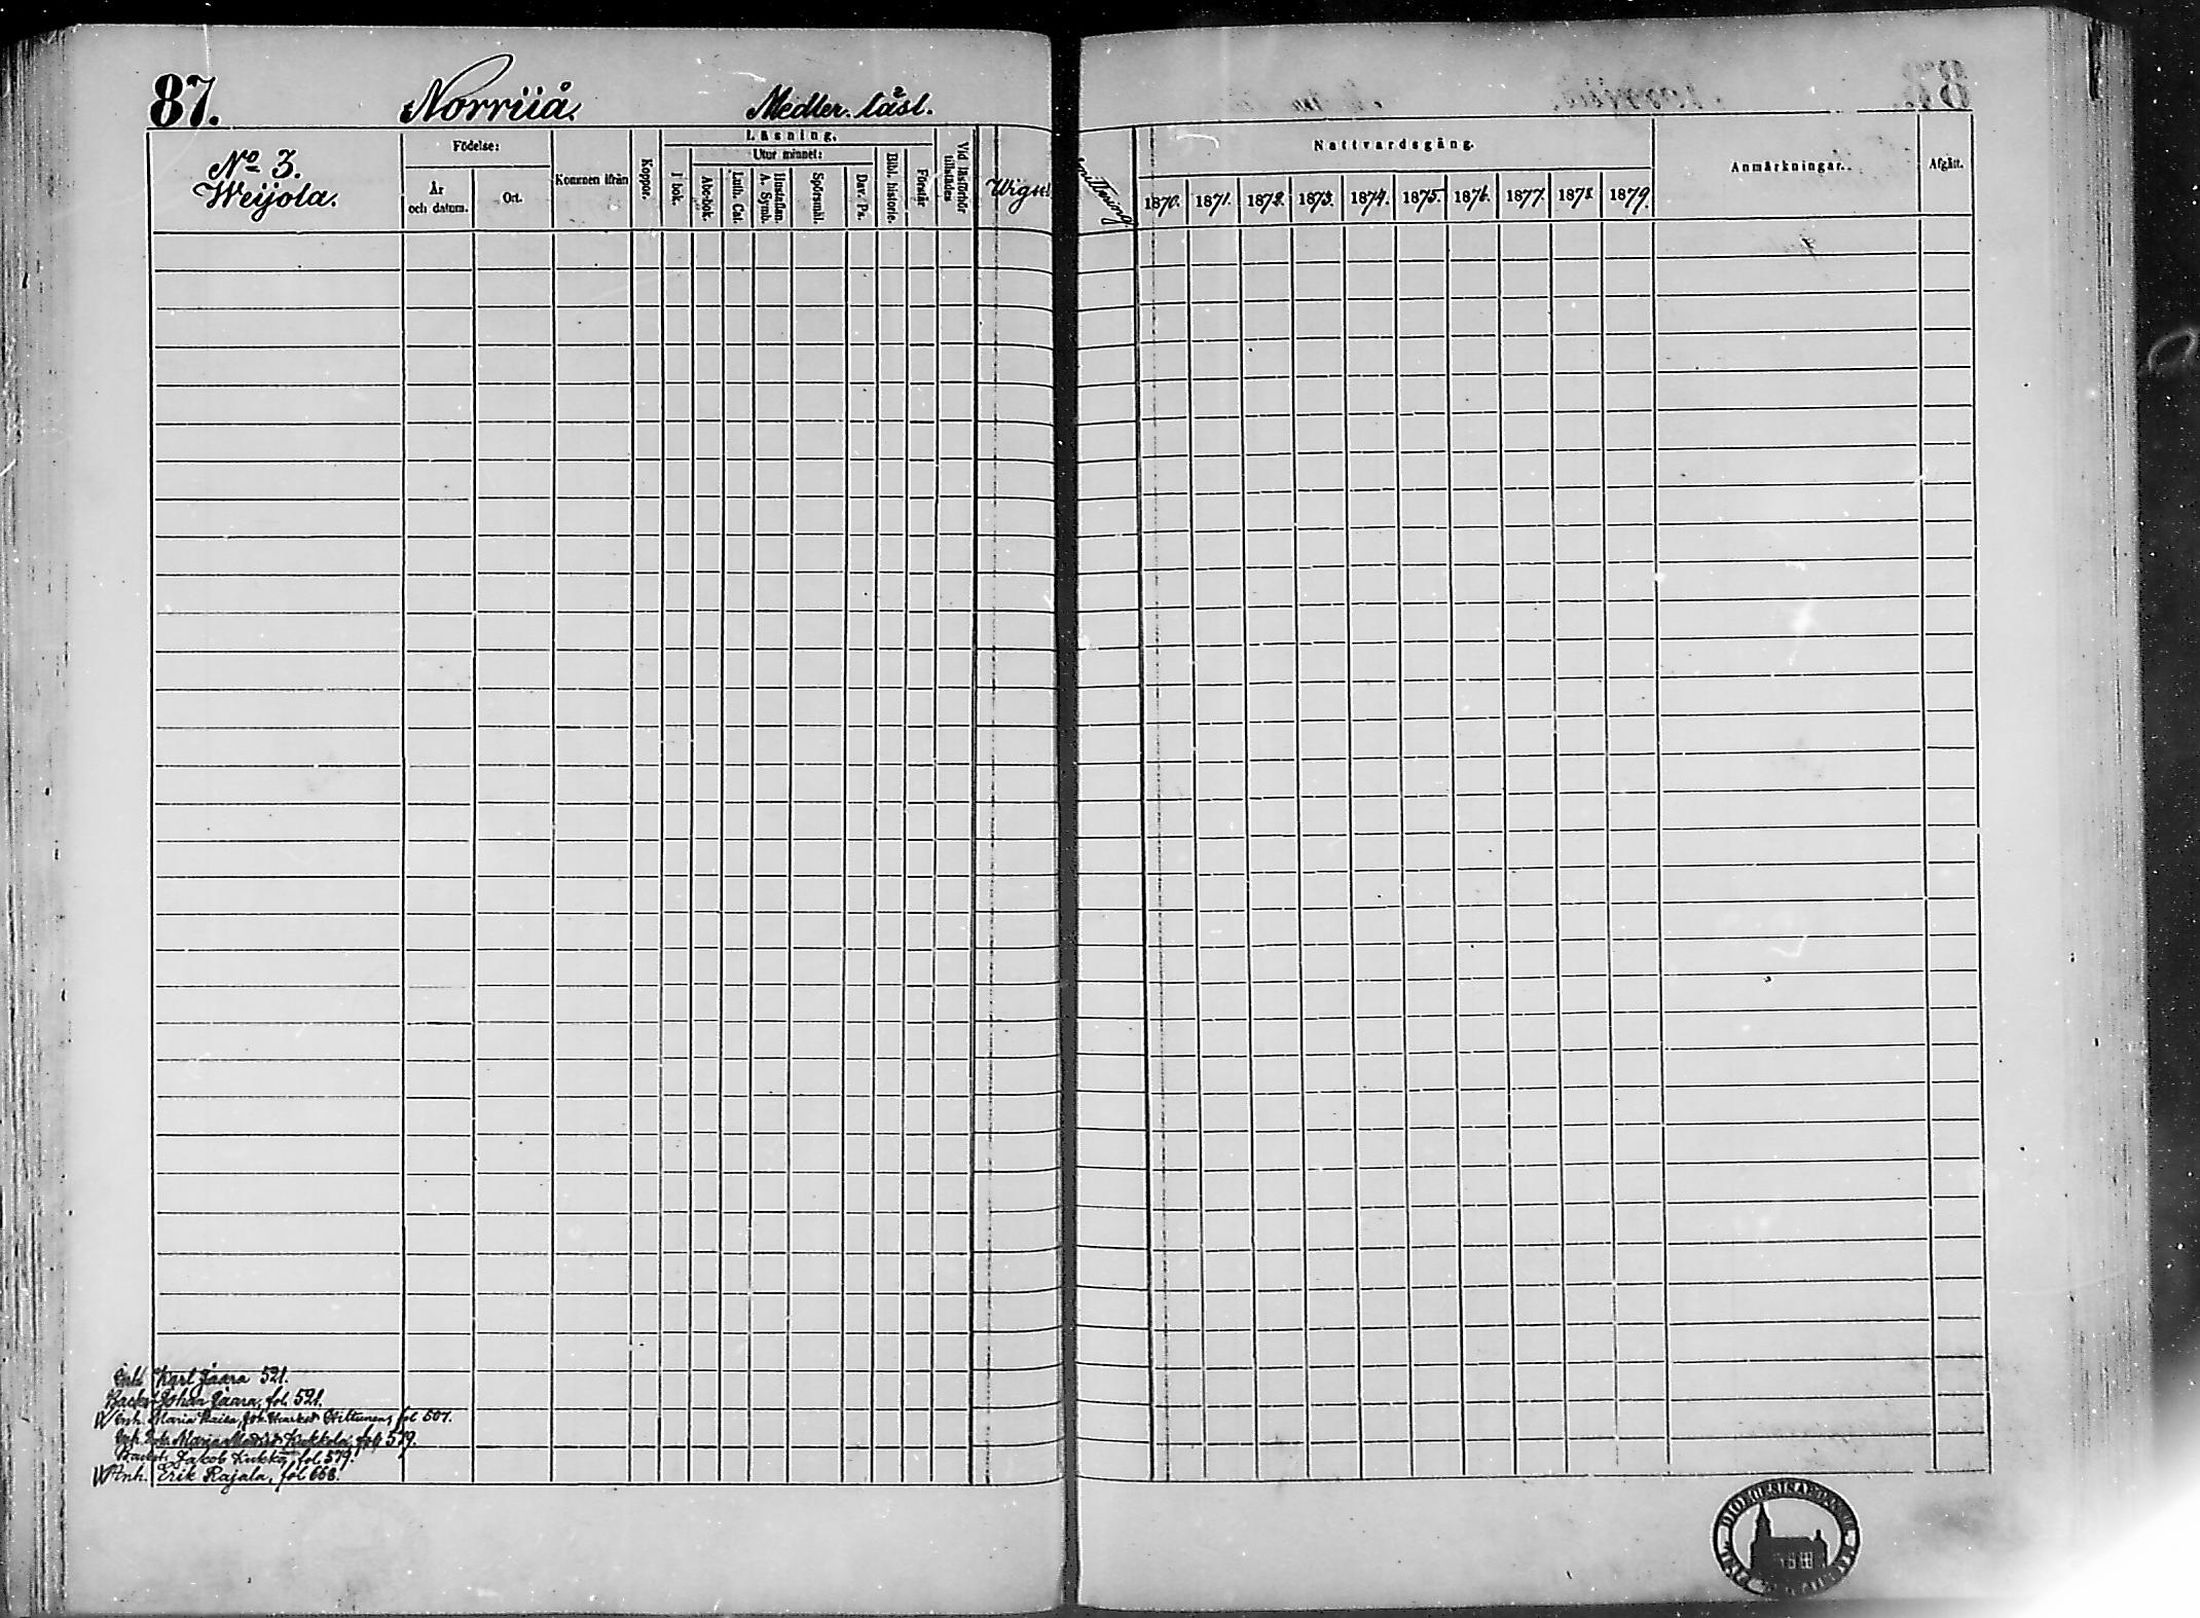 87. Norriiå. Medler. läsl.
No 3.
Weijola.
Födelse:
År
och datum.
Ort.
Kommen ifrån
Koppor.
Läsning.
I bok.
Utur minnet:
Abc-bok.
Luth. Cat.
Hustaflan.
A. Symb.
Spörsmål.
Dav. Ps.
Bibl. historie.
Förstår
Vid läsförhör
tillstädes
Nattvardsgång.
1870. 1871. 1872. 1873. 1874. 1875. 1876. 1877. 1878. 1879.
Anmärkningar.
Afgått.
Karl Jaara 521.
Johan Jaara, fol. 521.
Inh. Maria Hiltunen, fol 507.
Maria Kukkola, fol 579.
Jakob Kukko, fol. 579.
Inh. Erik Rajala, fol 668.